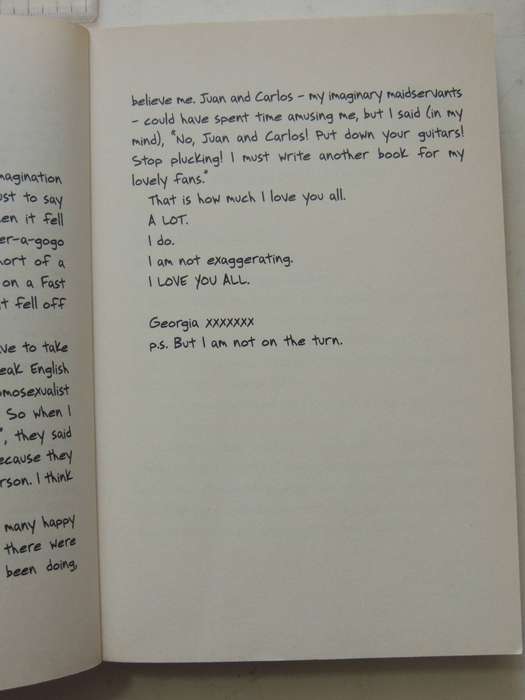 magination
ust to say
en it fell
er-a-gogo
ort of a
on a Fast
t fell off
ve to take
eak English
mosexualist
So when I
", they said
ecause they
rson. I think
many happy
there were
been doing,
believe me. Juan and Carlos – my imaginary maidservants
– could have spent time amusing me, but I said (in my
mind), "No, Juan and Carlos! Put down your guitars!
Stop plucking! I must write another book for my
lovely fans."
That is how much I love you all.
A LOT.
I do.
I am not exaggerating.
I LOVE YOU ALL.
Georgia xxxxxxx
p.s. But I am not on the turn.